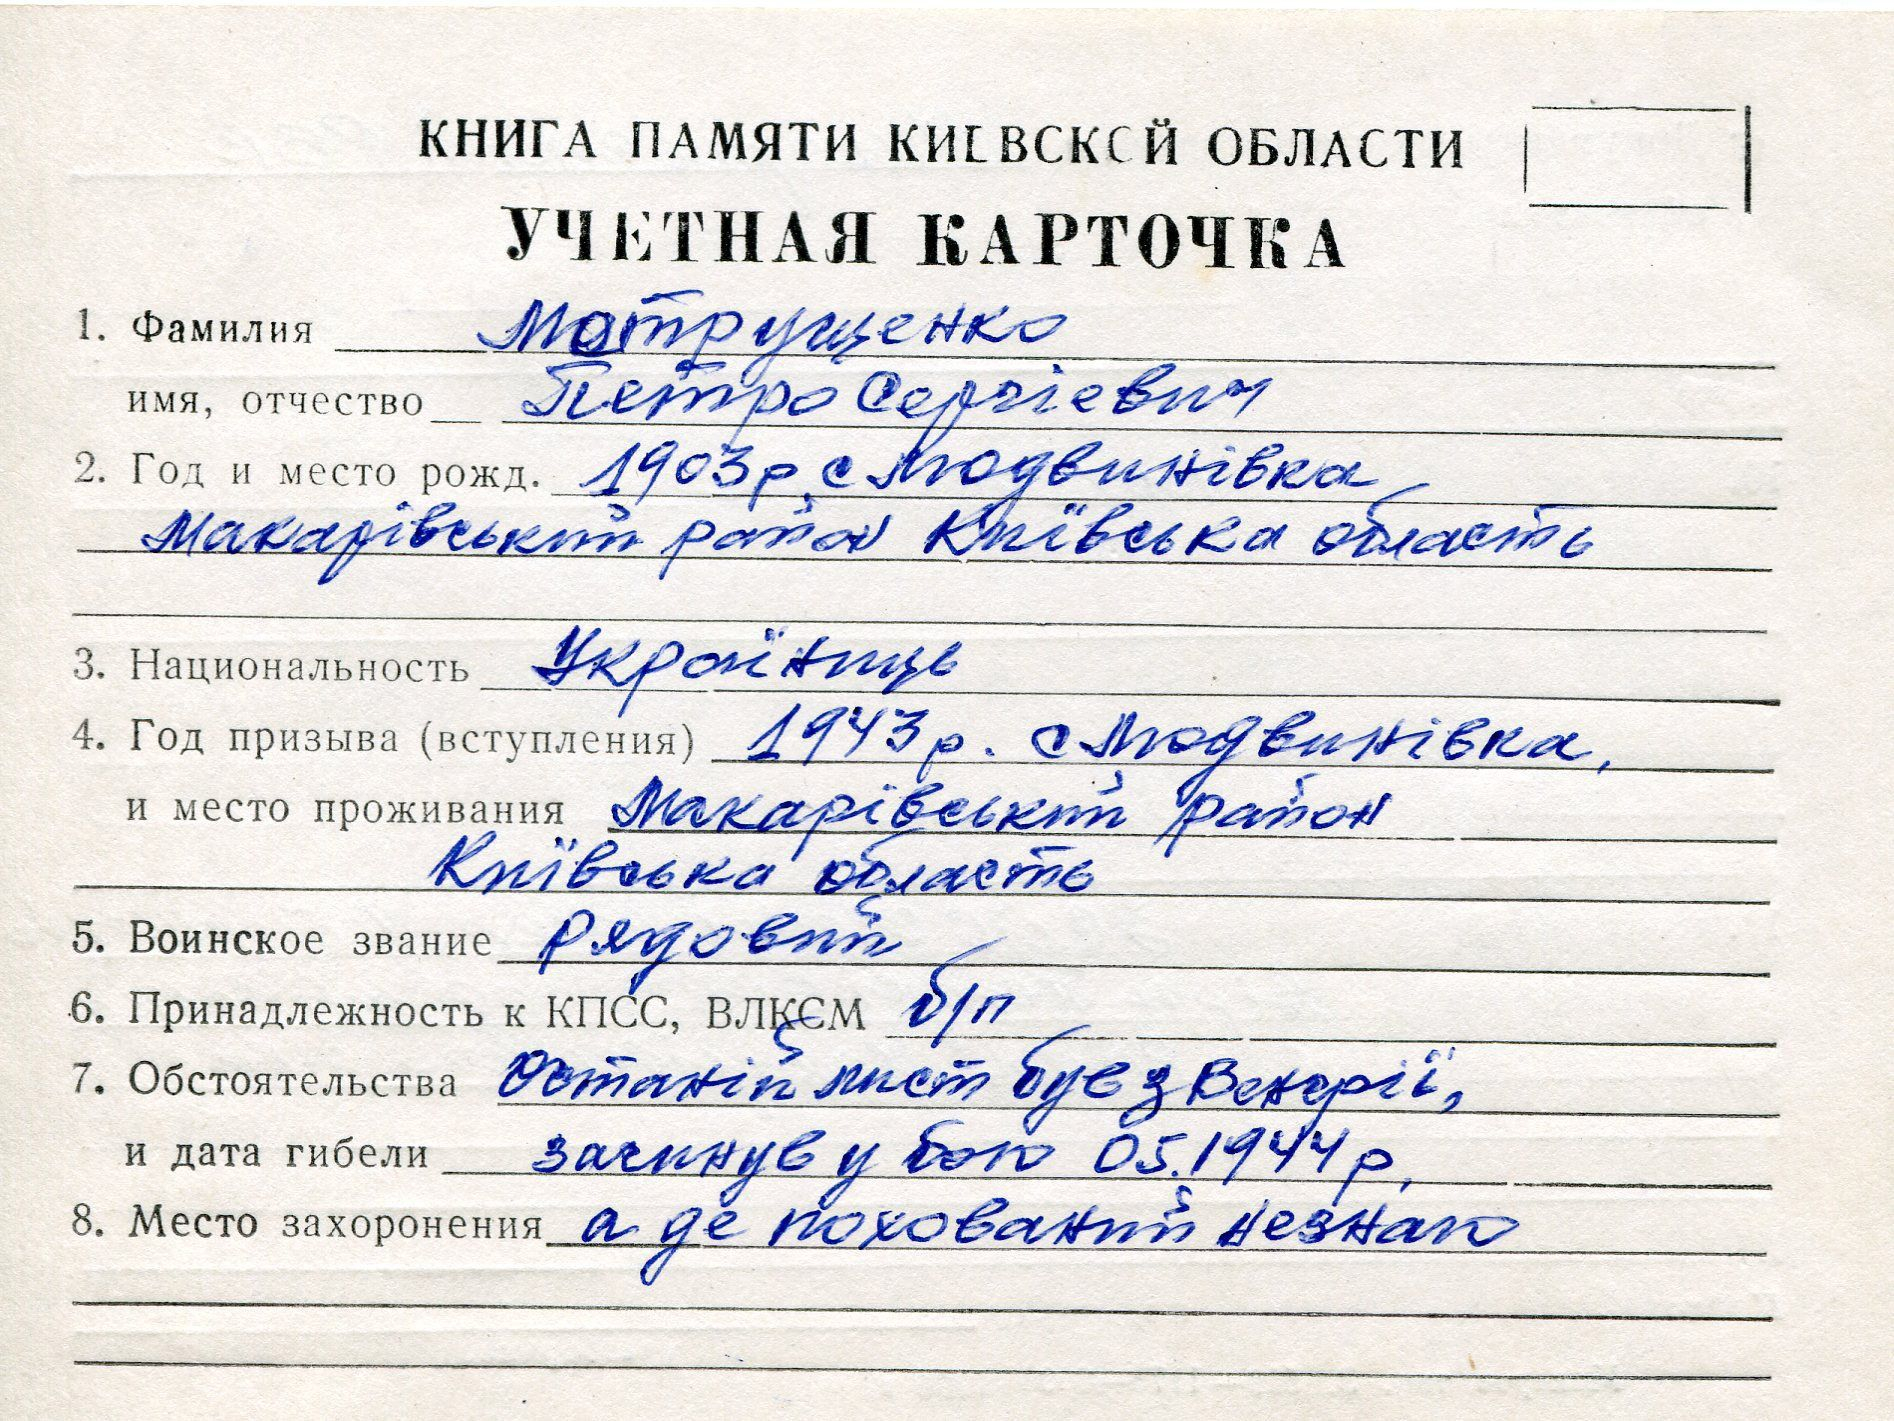 КНИГА ПАМЯТИ КИЕВСКОЙ ОБЛАСТИ
УЧЕТНАЯ КАРТОЧКА
1. Фамилия Матрущенко
имя, отчество Петро Сергієвич
2. Год и место рожд. 1903 р. с Людвинівка
Макарівський район Київська область
3. Национальность Українець
4. Год призыва (вступления) 1943 р. с Людвинівка,
и место проживания Макарівський район
Київська область
5. Воинское звание рядовий
6. Принадлежность к КПСС, ВЛКСМ б/п
7. Обстоятельства Останій лист був з Венгрії,
и дата гибели загинув у бою 05.1944 р.
8. Место захоронения а де похований незнаю